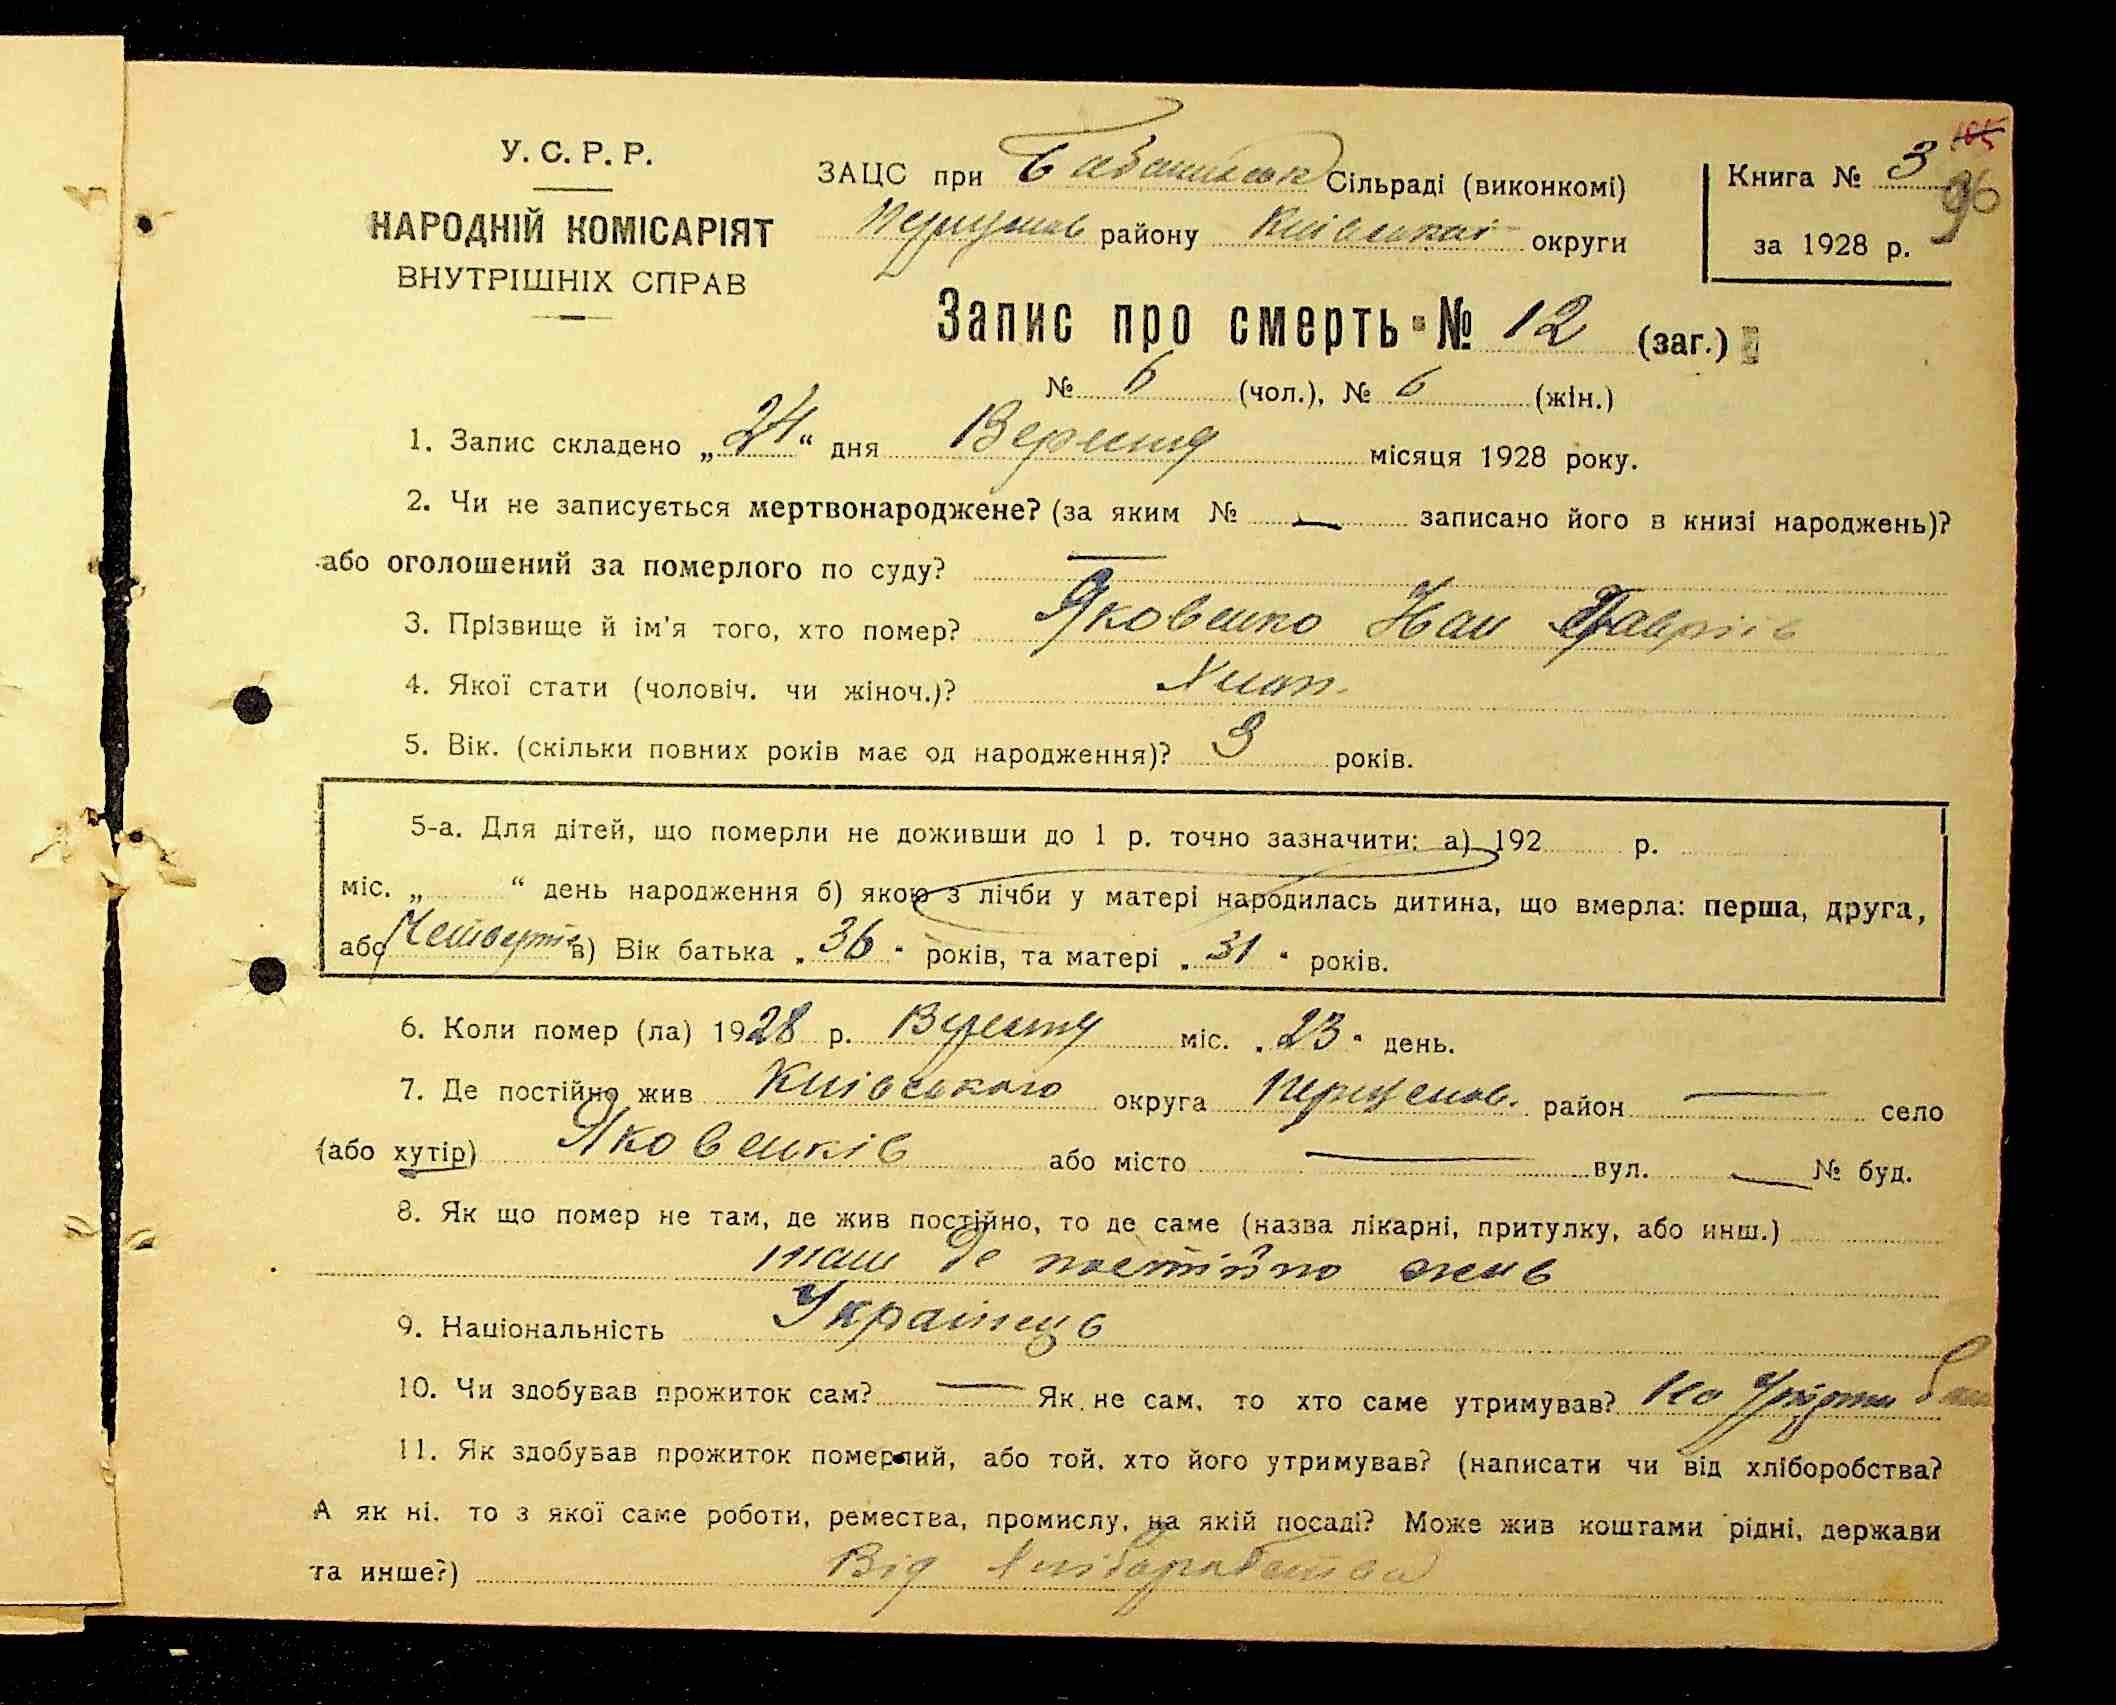 У. С. Р. Р.
НАРОДНІЙ КОМІСАРІЯТ
ВНУТРІШНІХ СПРАВ
ЗАЦС при Сільраді (виконкомі)
району Київської округи
Книга № 3
105
96
за 1928 р.
Запис про смерть № 12 (заг.)
№ 6 (чол.), № 6 (жін.)
1. Запис складено „24“ дня Вересня місяця 1928 року.
2. Чи не записується мертвонароджене? (за яким № — записано його в книзі народжень)?
або оголошений за померлого по суду? —
3. Прізвище й ім'я того, хто помер? Яковенко
4. Якої стати (чоловіч. чи жіноч.)?
5. Вік. (скільки повних років має од народження)? 3 років.
5-а. Для дітей, що померли не доживши до 1 р. точно зазначити: а) 192 р.
міс. „ “ день народження б) якою з лічби у матері народилась дитина, що вмерла: перша, друга,
або Четверте в) Вік батька „36“ років, та матері „31“ років.
6. Коли помер (ла) 1928 р. Вересня міс. „23“ день.
7. Де постійно жив Київського округа район — село
(або хутір) Яковенків або місто — вул. — № буд.
8. Як що помер не там, де жив постійно, то де саме (назва лікарні, притулку, або инш.)
там де постійно жив
9. Національність Українець
10. Чи здобував прожиток сам? — Як не сам, то хто саме утримував?
11. Як здобував прожиток померлий, або той, хто його утримував? (написати чи від хліборобства?
А як ні, то з якої саме роботи, ремества, промислу, на якій посаді? Може жив коштами рідні, держави
та инше?) Від хліборобства